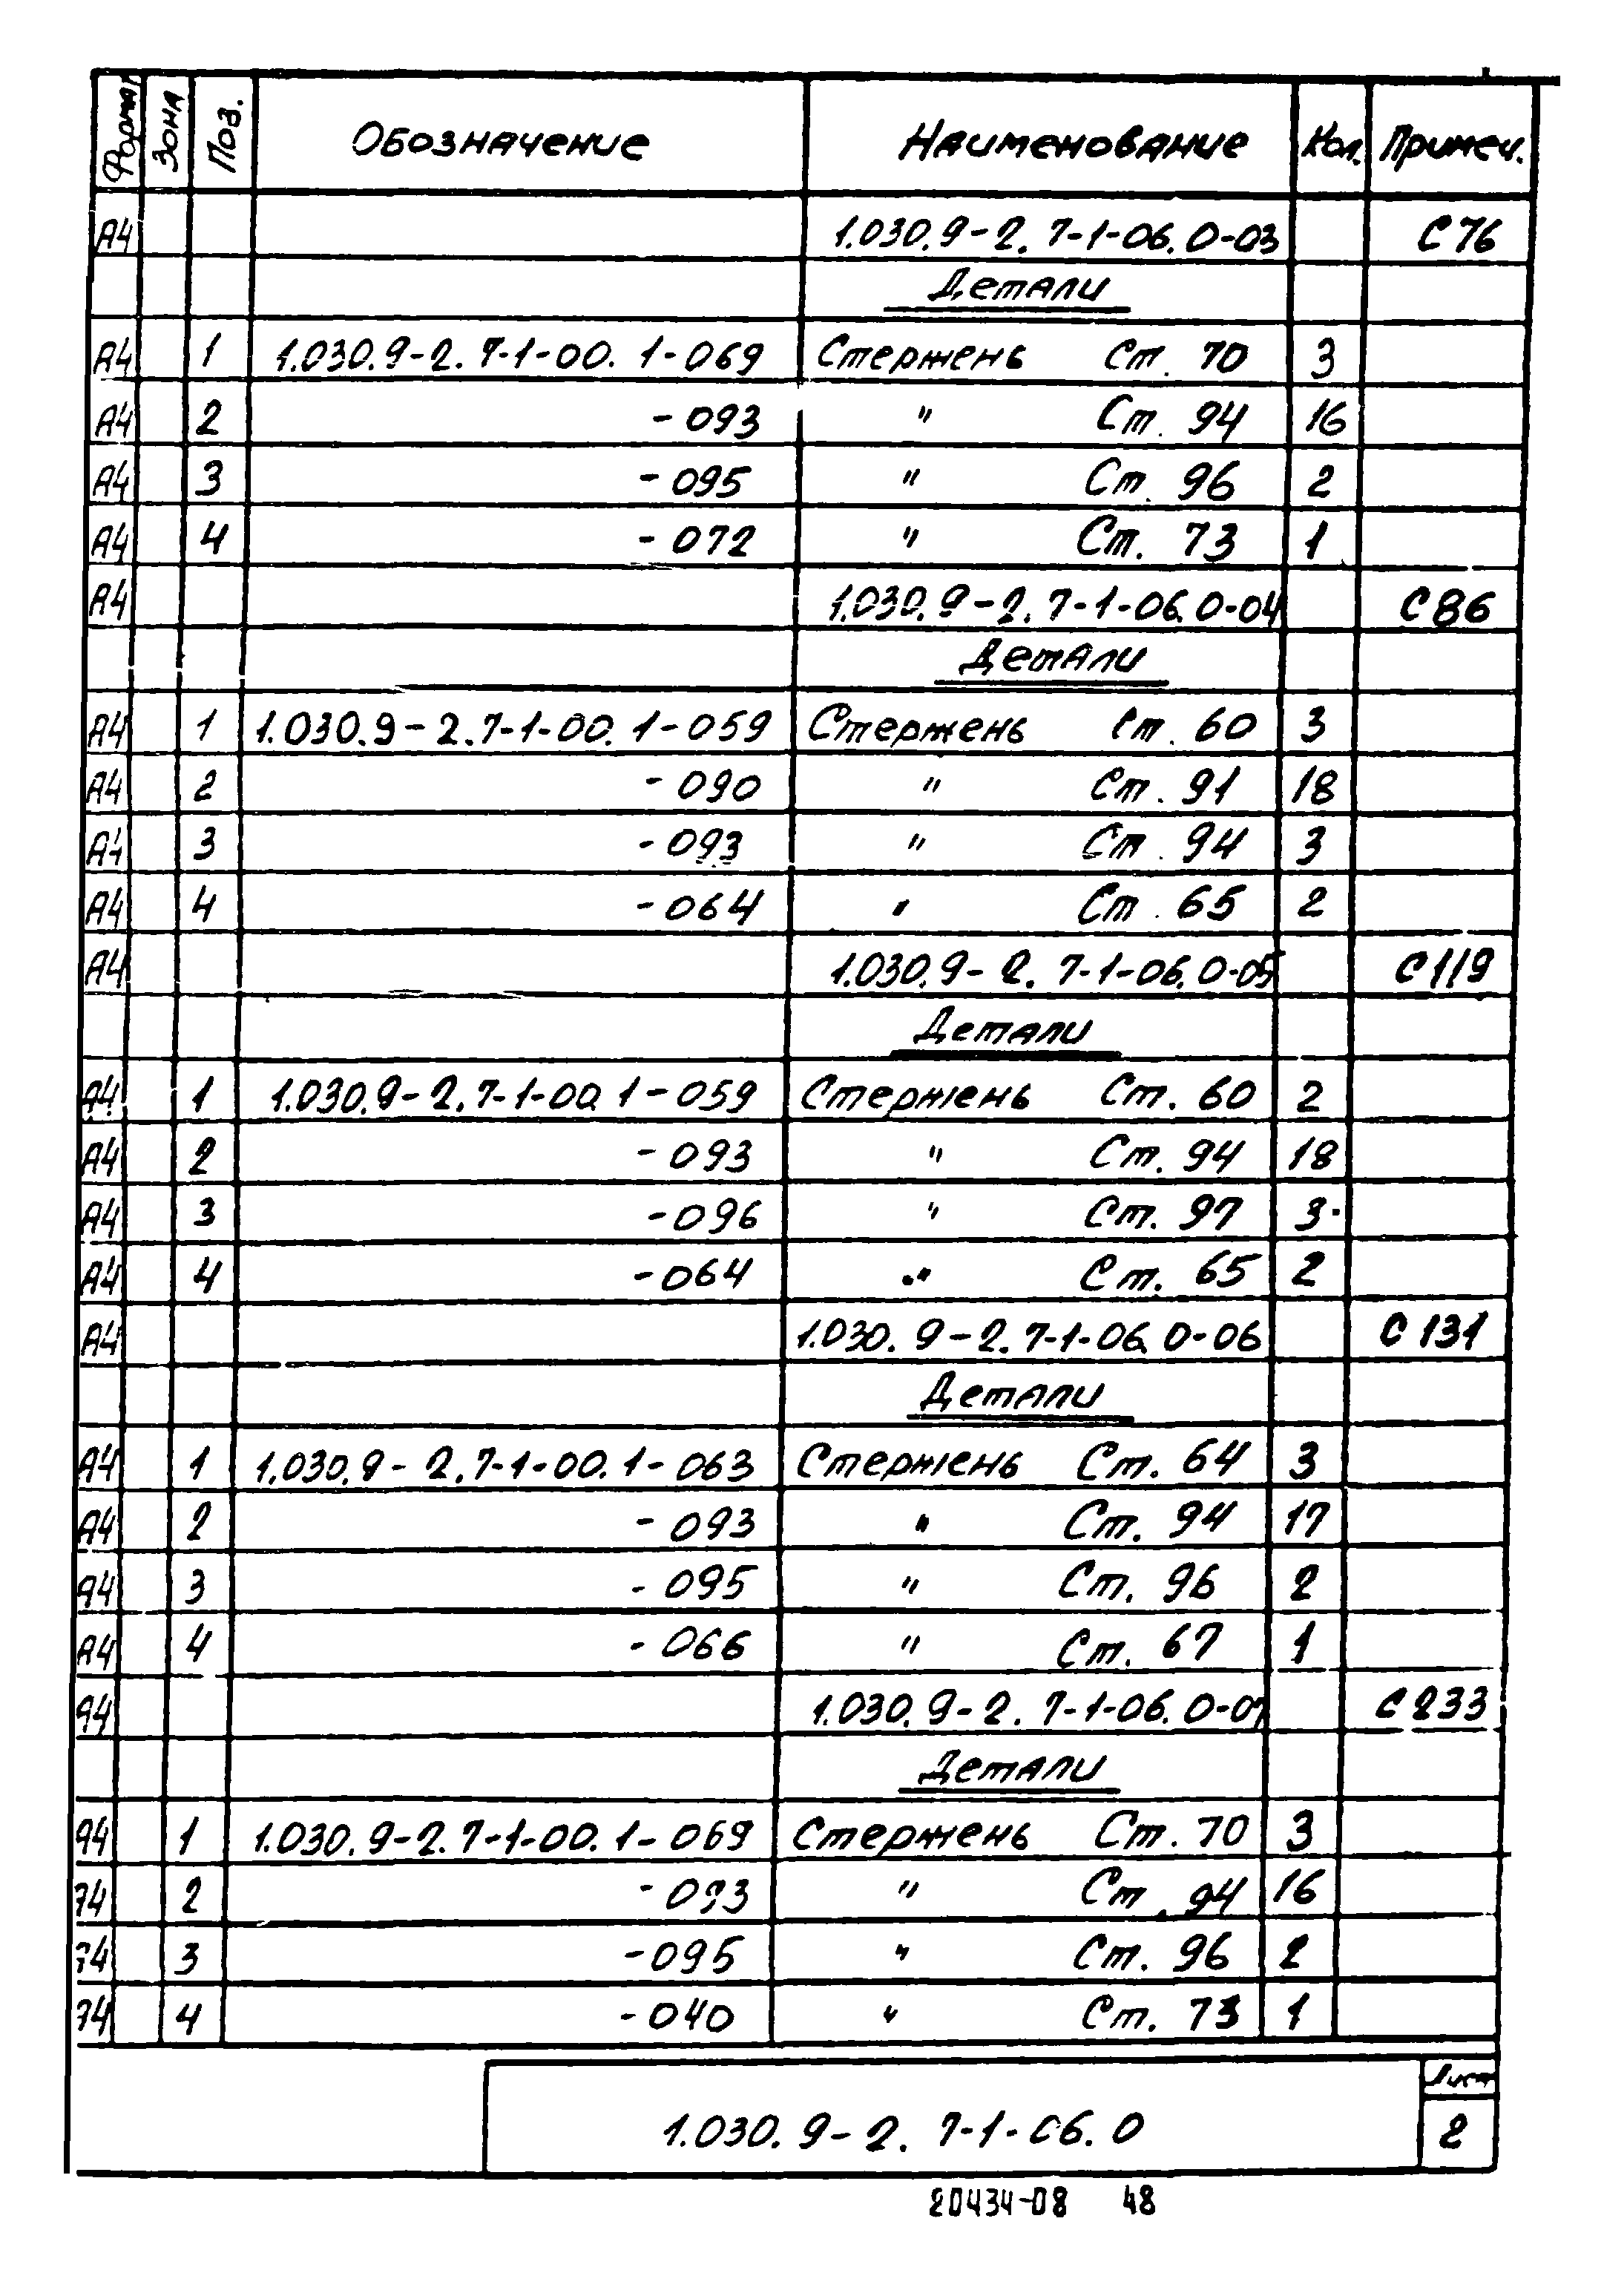 Форма Зона Поз. Обозначение Наименование Кол. Примеч.
А4 1.030.9-2.7-1-06.0-03 С76
Детали
А4 1 1.030.9-2.7-1-00.1-069 Стержень Ст. 70 3
А4 2 -093 " Ст. 94 16
А4 3 -095 " Ст. 96 2
А4 4 -072 " Ст. 73 1
А4 1.030.9-2.7-1-06.0-04 С86
Детали
А4 1 1.030.9-2.7-1-00.1-059 Стержень Ст. 60 3
А4 2 -090 " Ст. 91 18
А4 3 -093 " Ст. 94 3
А4 4 -064 " Ст. 65 2
А4 1.030.9-2.7-1-06.0-05 С119
Детали
А4 1 1.030.9-2.7-1-00.1-059 Стержень Ст. 60 2
А4 2 -093 " Ст. 94 18
А4 3 -096 " Ст. 97 3
А4 4 -064 " Ст. 65 2
А4 1.030.9-2.7-1-06.0-06 С131
Детали
А4 1 1.030.9-2.7-1-00.1-063 Стержень Ст. 64 3
А4 2 -093 " Ст. 94 17
А4 3 -095 " Ст. 96 2
А4 4 -066 " Ст. 67 1
А4 1.030.9-2.7-1-06.0-07 С233
Детали
А4 1 1.030.9-2.7-1-00.1-069 Стержень Ст. 70 3
А4 2 -093 " Ст. 94 16
А4 3 -095 " Ст. 96 2
А4 4 -040 " Ст. 73 1
Лист
1.030.9-2.7-1-06.0 2
20434-08 48